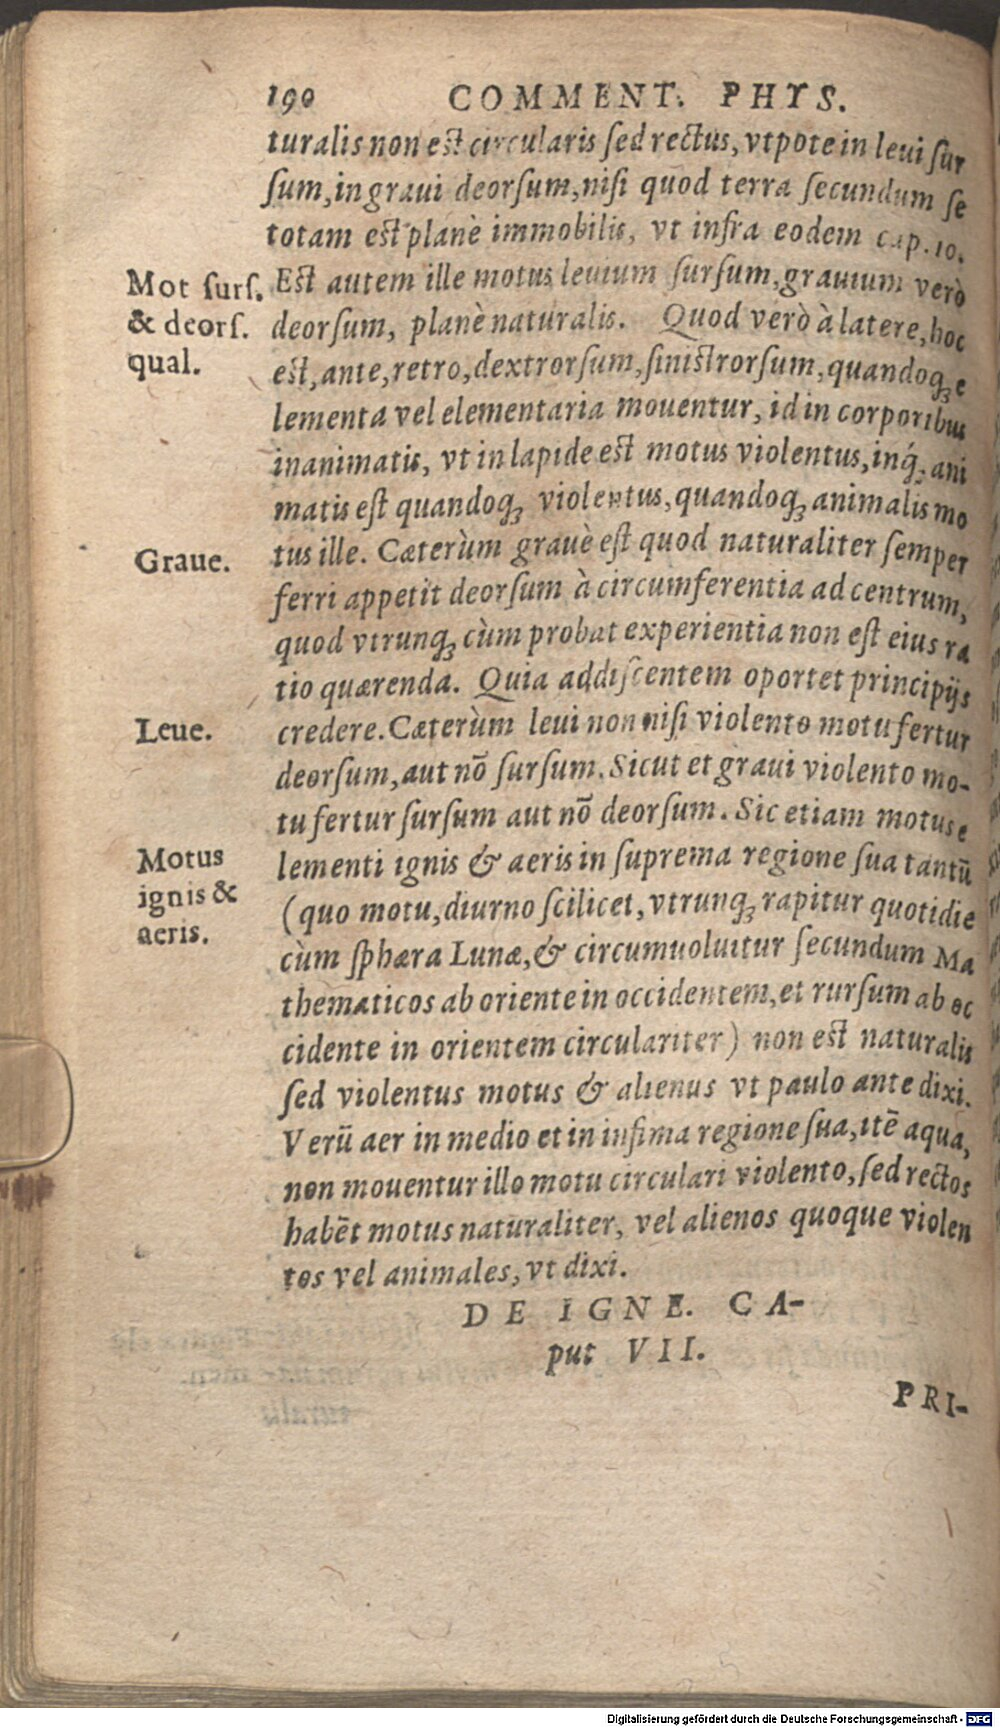 190 COMMENT. PHYS.
turalis non est circularis ſed rectus, vtpote in leui ſur
ſum, in graui deorſum, niſi quod terra ſecundum ſe
totam est planè immobilis, vt infra eodem cap. 10.
Mot ſurſ.
& deorſ.
qual.
Est autem ille motus leuium ſurſum, grauium verò
deorſum, planè naturalis. Quod verò à latere, hoc
est, ante, retro, dextrorſum, ſinistrorſum, quandoqꝫ e
lementa vel elementaria mouentur, id in corporibus
inanimatis, vt in lapide est motus violentus, inqꝫ́ ani
matis eſt quandoqꝫ violentus, quandoqꝫ animalis mo
Graue.
tus ille. Cæterùm grauè eſt quod naturaliter ſemper
ferri appetit deorſum à circumferentia ad centrum,
quod vtrunqꝫ cùm probat experientia non eſt eius ra
tio quærenda. Quia addiſcentem oportet principijs
Leue.
credere. Cæterùm leui non niſi violento motu fertur
deorſum, aut nō ſurſum. Sicut et graui violento mo-
tu fertur ſurſum aut nō deorſum. Sic etiam motus e
Motus
ignis &
aeris.
lementi ignis & aeris in ſuprema regione ſua tantū
(quo motu, diurno ſcilicet, vtrunqꝫ rapitur quotidie
cùm ſphæra Lunæ, & circumuoluitur ſecundum Ma
thematicos ab oriente in occidentem, et rurſum ab oc
cidente in orientem circulariter) non est naturalis
ſed violentus motus & alienus vt paulo ante dixi.
Verū aer in medio et in infima regione ſua, itē aqua,
non mouentur illo motu circulari violento, ſed rectos
habēt motus naturaliter, vel alienos quoque violen
tos vel animales, vt dixi.
DE IGNE. CA-
put VII.
PRI-
Digitalisierung gefördert durch die Deutsche Forschungsgemeinschaft - DFG